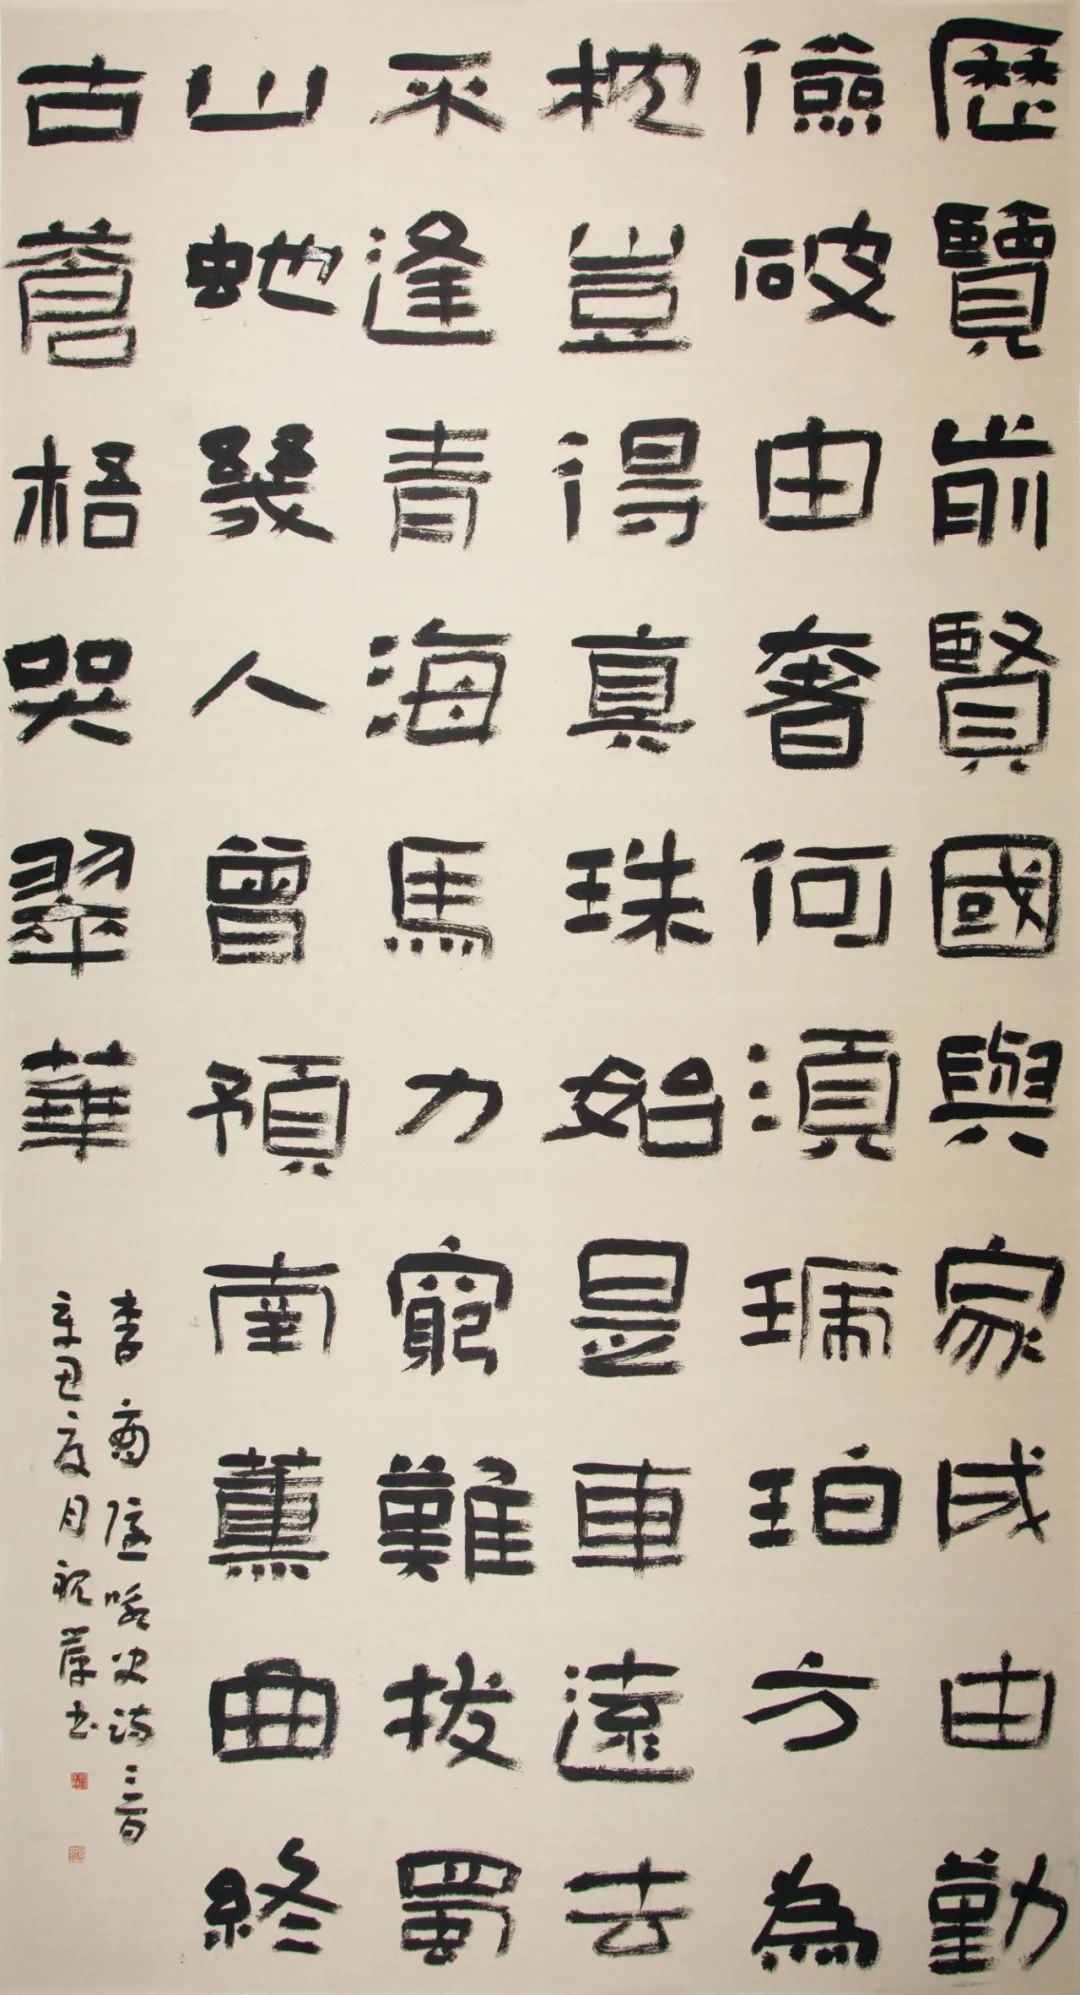 歷覽前賢國與家成由勤
儉破由奢何須琥珀方為
枕豈得真珠始是車遠去
不逢青海馬力窮難拔蜀
山蛇幾人曾預南薰曲終
古蒼梧哭翠華
李商隱咏史詩首
辛丑夏月书